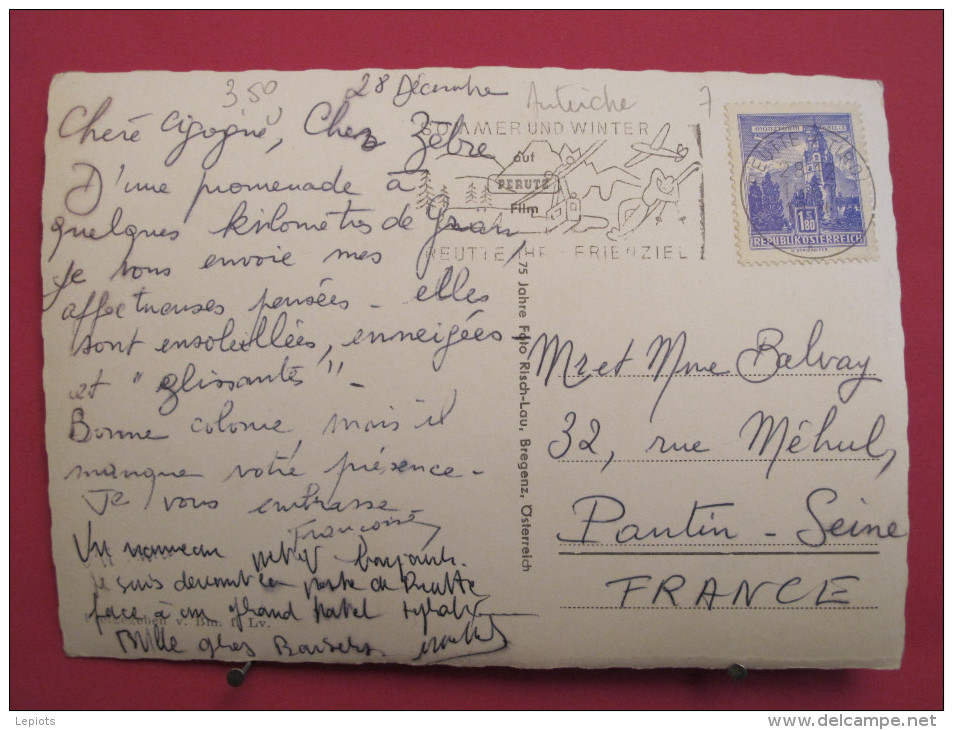 350
28 Décembre
Autriche
7
Cheré Cigogne, Cher Zèbre
D'une promenade à
quelques kilomètres de
Je vous envoie mes
affectueuses pensées - elles
sont ensoleillées, enneigées
et "glissantes" -
Bonne colonie, mais il
manque votre présence -
Je vous embrasse
Françoise
Un nouveau petit bonjour.
Je suis devant la poste de Reutte
face à un grand hotel
Mille gros Baisers
SOMMER UND WINTER
auf
PERUTZ
Film
REUTTE IHR FERIENZIEL
REUTTE TIROL
1.80
REPUBLIK ÖSTERREICH
75 Jahre Foto Risch-Lau, Bregenz, Österreich
Mr et Mme Balvay
32, rue Méhul,
Pantin - Seine
FRANCE
Freigegeben v. Bm. f. Lv.
Lepiots
www.delcampe.net